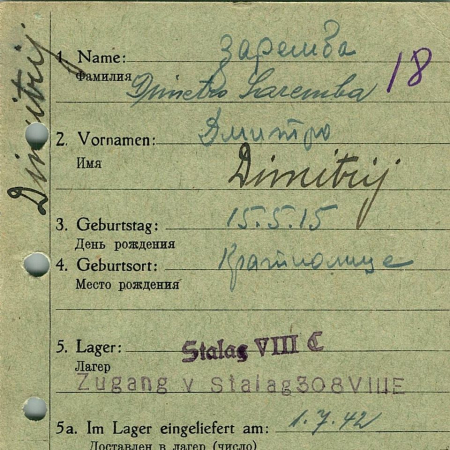 Dimitrij
1. Name: Заремба
Фамилия Dimetro Saremba 18
2. Vornamen: Дмитро
Имя Dimitrij
3. Geburtstag: 15.5.15
День рождения
4. Geburtsort:
Место рождения
5. Lager: Stalag VIII C
Лагерь
Zugang v Stalag 308 VIII E
5a. Im Lager eingeliefert am: 1.7.42
Доставлен в лагерь (число)